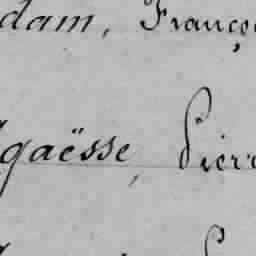 dam, Franço
gaësse, Pierr